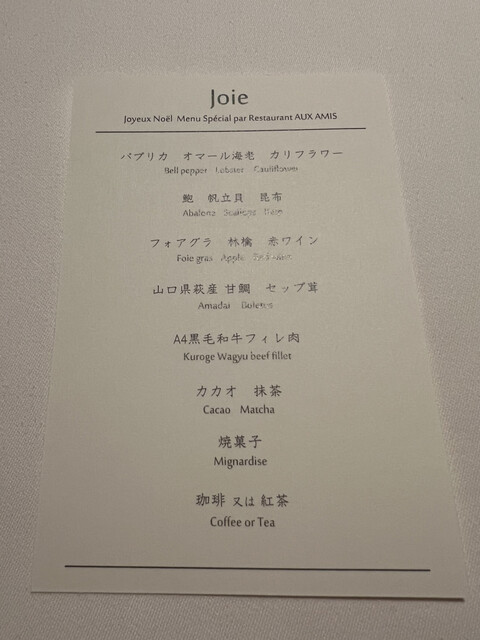 Joie
Joyeux Noël Menu Spécial par Restaurant AUX AMIS
パプリカ オマール海老 カリフラワー
Bell pepper Lobster Cauliflower
鮑 帆立貝 昆布
Abalone Scallops
フォアグラ 林檎 赤ワイン
Foie gras Apple
山口県萩産 甘鯛 セップ茸
Amadai Boletus
A4黒毛和牛フィレ肉
Kuroge Wagyu beef fillet
カカオ 抹茶
Cacao Matcha
焼菓子
Mignardise
珈琲 又は 紅茶
Coffee or Tea